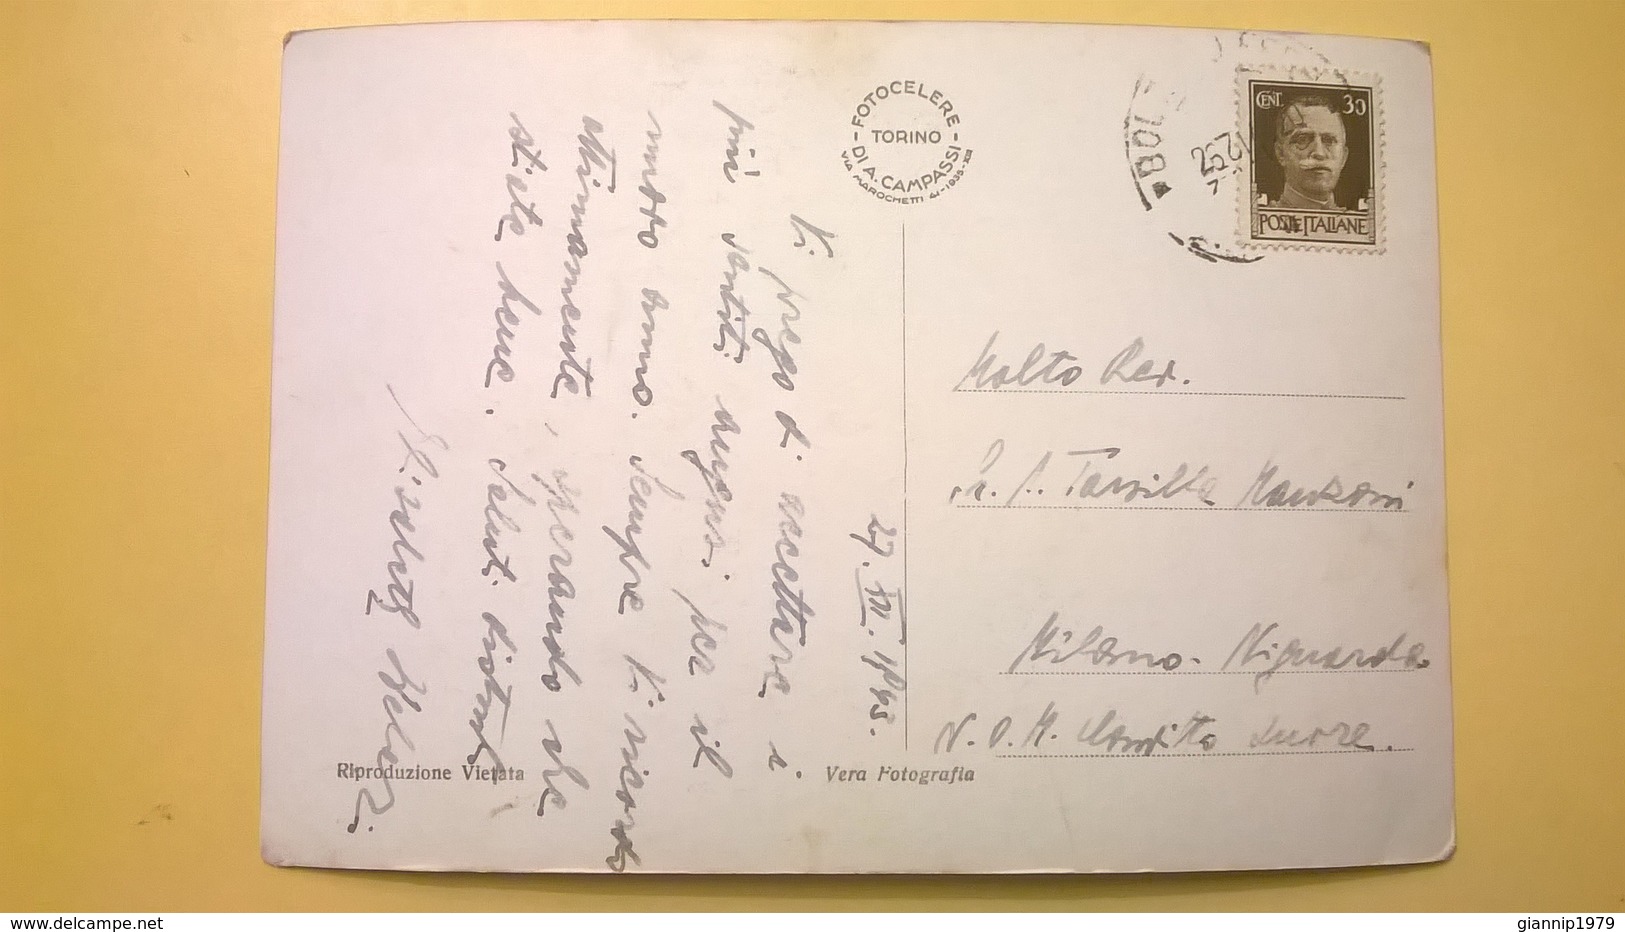 FOTOCELERE
TORINO
DI A. CAMPASSI
VIA MAROCHETTI 41-1935-XIII
CENT. 30
POSTE ITALIANE
27. XII. 1943.
Vi prego di accettare i
più sentiti auguri per il
nuovo anno. Sempre Vi ricordo
intimamente, sperando che
stiate bene. Saluti distinti
Molto Rev.
Tarsilla Manzoni
Milano - Niguarda
Suore.
Riproduzione Vietata
Vera Fotografia
delcampe.net
giannip1979